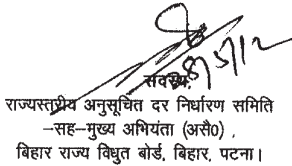 सदस्य,
राज्यस्तरीय अनुसूचित दर निर्धारण समिति
-सह-मुख्य अभियंता (असै०) ,
बिहार राज्य विधुत बोर्ड, बिहार, पटना।